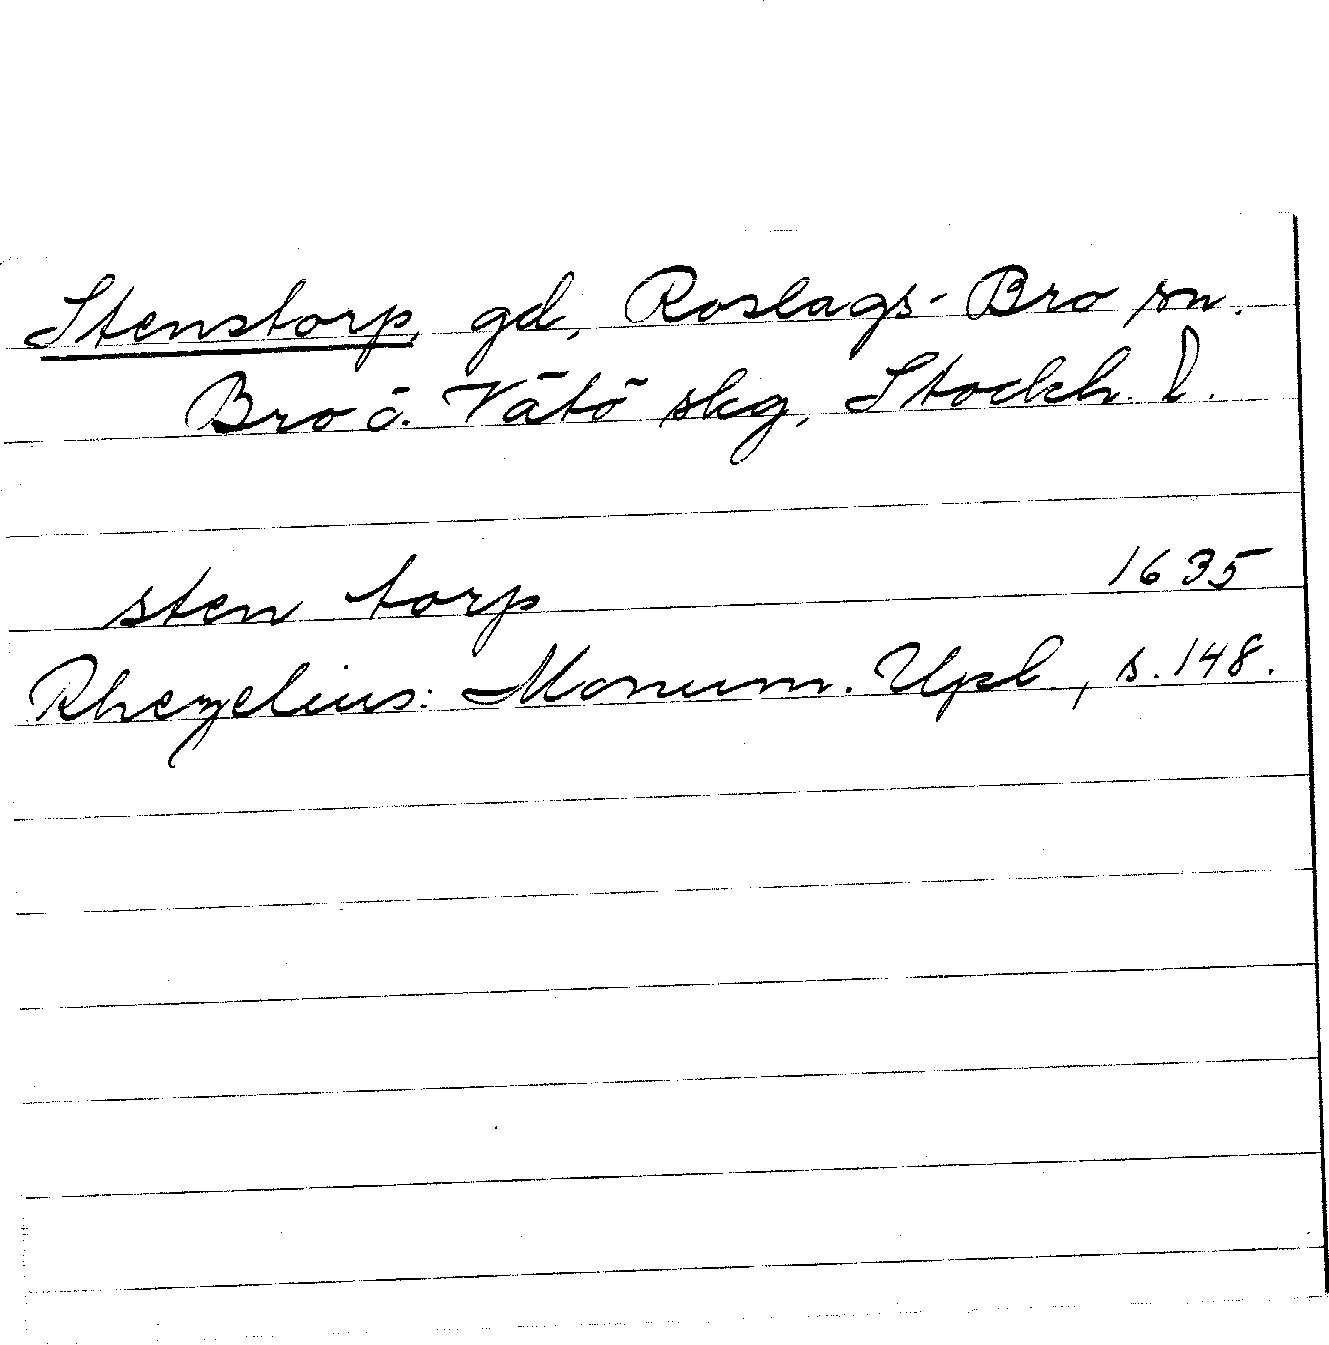 Stenstorp, gd, Roslags-Bro sn.
Bro o. Vätö skg, Stockh. l.
sten torp 1635
Rhezelius: Monum. Upl, s. 148.